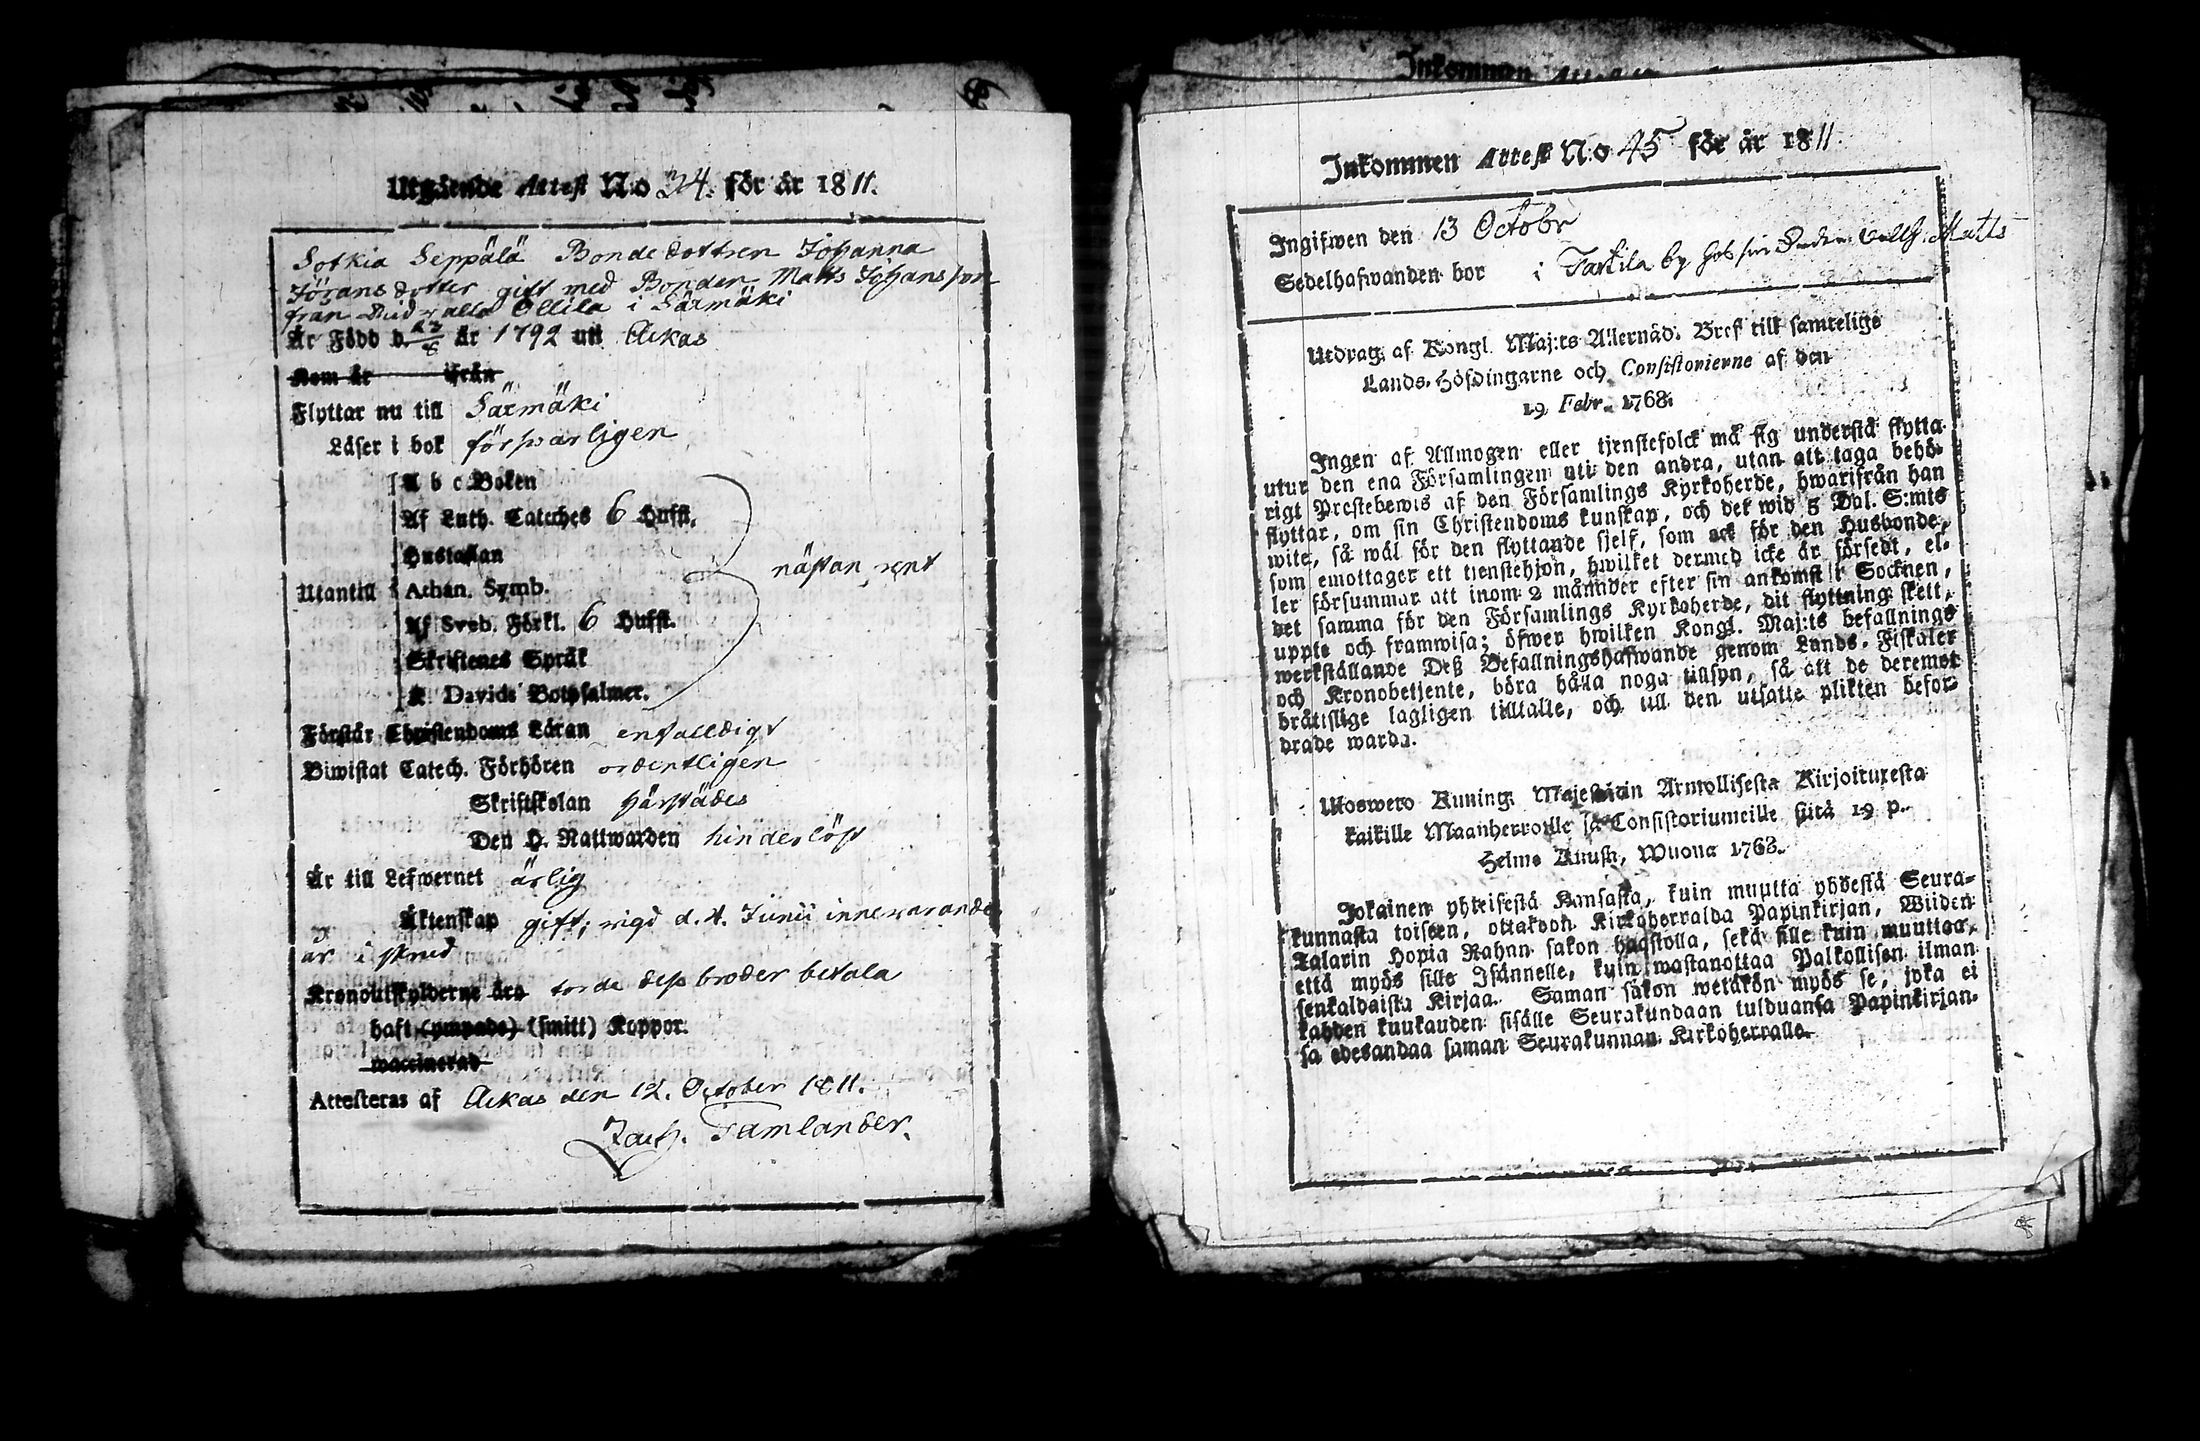 Utgående Attest N:o 24. för år 1811.
Sotkia Seppälä Bondedottren Johanna
Jöransdotter gift med Bonden Matts Johansson
från Ollila i Särmäki
Är Född d. 23/8 år 1792 uti Ackas
Kom år ifrån
Flyttar nu till Särmäki
Läser i bok försvarligen
A b c Boken
Af Luth. Cateches 6 Hufst.
Hustaflan
Utantill Athan. Symb.
nästan rent
Af Sveb. Förkl. 6 Hufst.
Skriftenes Språk
K. Davids Botpsalmer.
Förstår Christendoms Läran enfalldigt
Biwistat Catech. Förhören ordentligen
Skriftskolan härstädes
Den H. Nattwarden hinderlöst
Är till Lefwernet ärlig
Äktenskap gift; vigd d. 4. Junii innevarande
år i
Kronoutskylderne äro torde dess broder betala
haft (ympade) (smitt) Koppor.
waccinerad
Attesteras af Ackas den 12. October 1811.
Zach. Tamlander.
Inkommen
Inkommen Attest N:o 45 för år 1811.
Ingifwen den 13 Octobr
Sedelhafwanden bor i by hos sin Matts
Utdrag af Kongl. Maj:ts Allernåd. Bref till samtelige
Lands-Höfdingarne och Consistorierne af den
19 Febr. 1768.
Ingen af Allmogen eller tjenstefolck må sig understå flytta
utur den ena Församlingen uti den andra, utan att taga behö-
rigt Prestebewis af den Församlings Kyrkoherde, hwarifrån han
flyttar, om sin Christendoms kunskap, och det wid 5 Dal. S:mts
wite, så wäl för den flyttande sjelf, som ock för den Husbonde,
som emottager ett tienstehjon, hwilket dermed icke är försedt, el-
ler försummar att inom 2 månnder efter sin ankomst i Socknen,
det samma för den Församlings Kyrkoherde, dit flyttning skett,
uppte och framwisa; öfwer hwilken Kongl. Maj:ts befallnings
werkställande Deß Befallningshafwande genom Lands-Fiskaler
och Kronobetjente, böra hålla noga tillsyn, så att de deremot
bråttslige lagligen tilltalte, och till den utsatte plikten befor-
drade warda.
Uloswero Kuning: Majestetin Armollisesta Kirjoituxesta
kaikille Maanherroille ja Consistoriumeille siitä 19 p.
Helme Kuusa, Wuona 1768.
Jokainen yhteisestä Kansasta, kuin muutta yhdestä Seura-
kunnasta toiseen, ottakoon Kirkoherralda Papinkirjan, Wiiden
Talarin Hopia Rahan sakon haastolla, sekä sille kuin muuttaa,
että myös sille Isännelle, kuin wastanottaa Palkollisen ilman
senkaldaista Kirjaa. Saman sakon wetäkön myös se, joka ei
kahden kuukauden sisälle Seurakundaan tulduansa Papinkirjan-
sa edesandaa saman Seurakunnan Kirkoherralle.